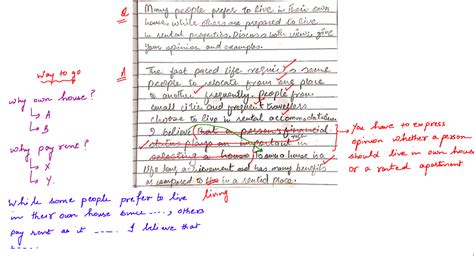 Q Many people prefer to live in their own
house, while others are prepared to live
in rental properties. Discuss both views, give
your opinion and examples.
Way to go
why own house?
A
B
why pay rent?
X
Y.
A The fast paced life requires some
people to relocate from one place
to another frequently, people from
small cities and frequent travellers
choose to live in rental accommodation
I believe that person's financial
status plays an important in role
selecting a house. To own a house is a
life long achievement and has many benefits
as compared to live in a rented place.
living
You have to express
opinion whether a person
should live in own house
or a rented apartment
While some people prefer to live
in their own house since ...., others
pay rent as it ..... I believe that
.....